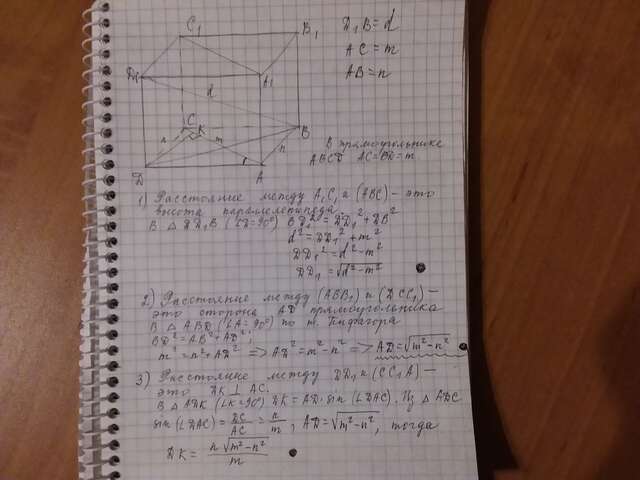 C₁
B₁
D₁
A₁
d
C
K
m
n
B
n
D
A
D₁B = d
AC = m
AB = n
В прямоугольнике
ABCD AC=BD=m
1) Расстояние между A₁C₁ и (ABC) – это
высота параллелепипеда.
В △ DD₁B (∠D=90°) BD₁² = DD₁² + DB²
d² = DD₁² + m²
DD₁² = d² – m²
DD₁ = √d² – m²
2) Расстояние между (ABB₁) и (DCC₁) –
это сторона AD прямоугольника
В △ ABD (∠A=90°) по т. Пифагора
BD² = AB² + AD²;
m² = n² + AD² => AD² = m² – n² => AD = √m² – n²
3) Расстояние между DD₁ и (CC₁A) –
это DK ⊥ AC.
В △ ADK (∠K=90°) DK = AD · sin (∠DAC). Из △ ADC
sin (∠DAC) = DC/AC = n/m; AD = √m² – n², тогда
DK = n√m² – n²/m